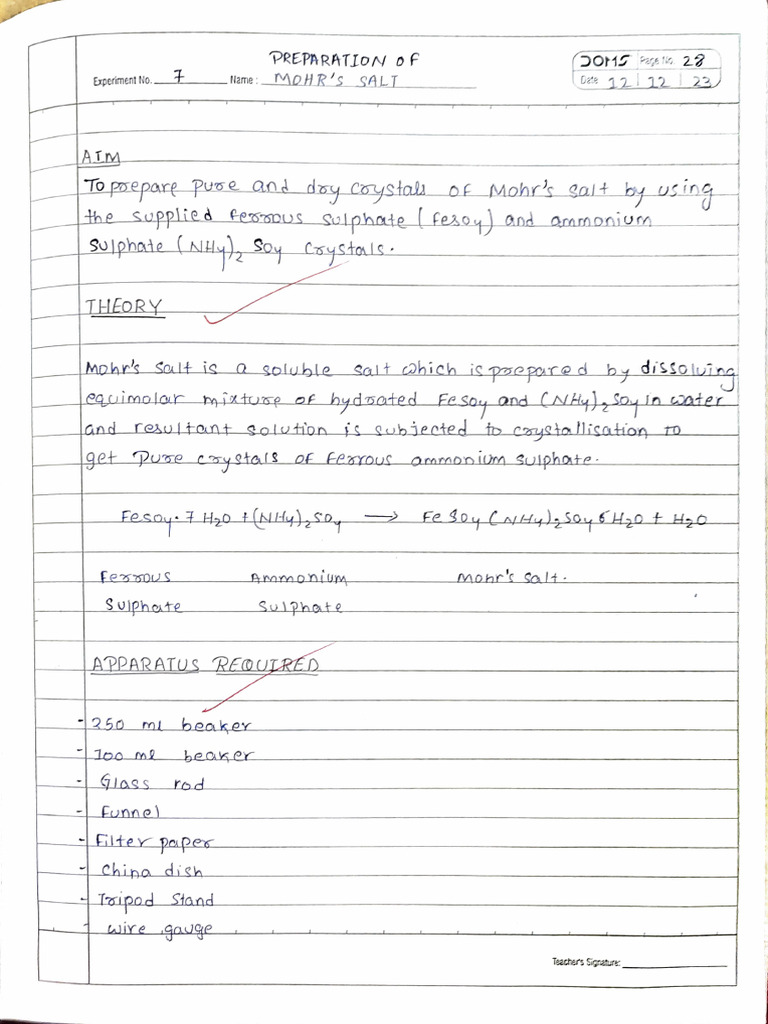 PREPARATION OF
Experiment No. 7 Name: MOHR'S SALT
DOMS Page No. 28
Date 12 12 23
AIM
To prepare pure and dry crystals of Mohr's salt by using
the supplied ferrous sulphate (FeSO4) and ammonium
sulphate (NH4)2 SO4 crystals.
THEORY
Mohr's salt is a soluble salt which is prepared by dissolving
equimolar mixture of hydrated FeSO4 and (NH4)2SO4 in water
and resultant solution is subjected to crystallisation to
get pure crystals of ferrous ammonium sulphate.
FeSO4·7H2O + (NH4)2SO4 → FeSO4(NH4)2SO4 6H2O + H2O
Ferrous Ammonium Mohr's salt.
Sulphate Sulphate
APPARATUS REQUIRED
- 250 ml beaker
- 100 ml beaker
- Glass rod
- funnel
- Filter paper
- China dish
- Tripod Stand
- wire gauge
Teacher's Signature: